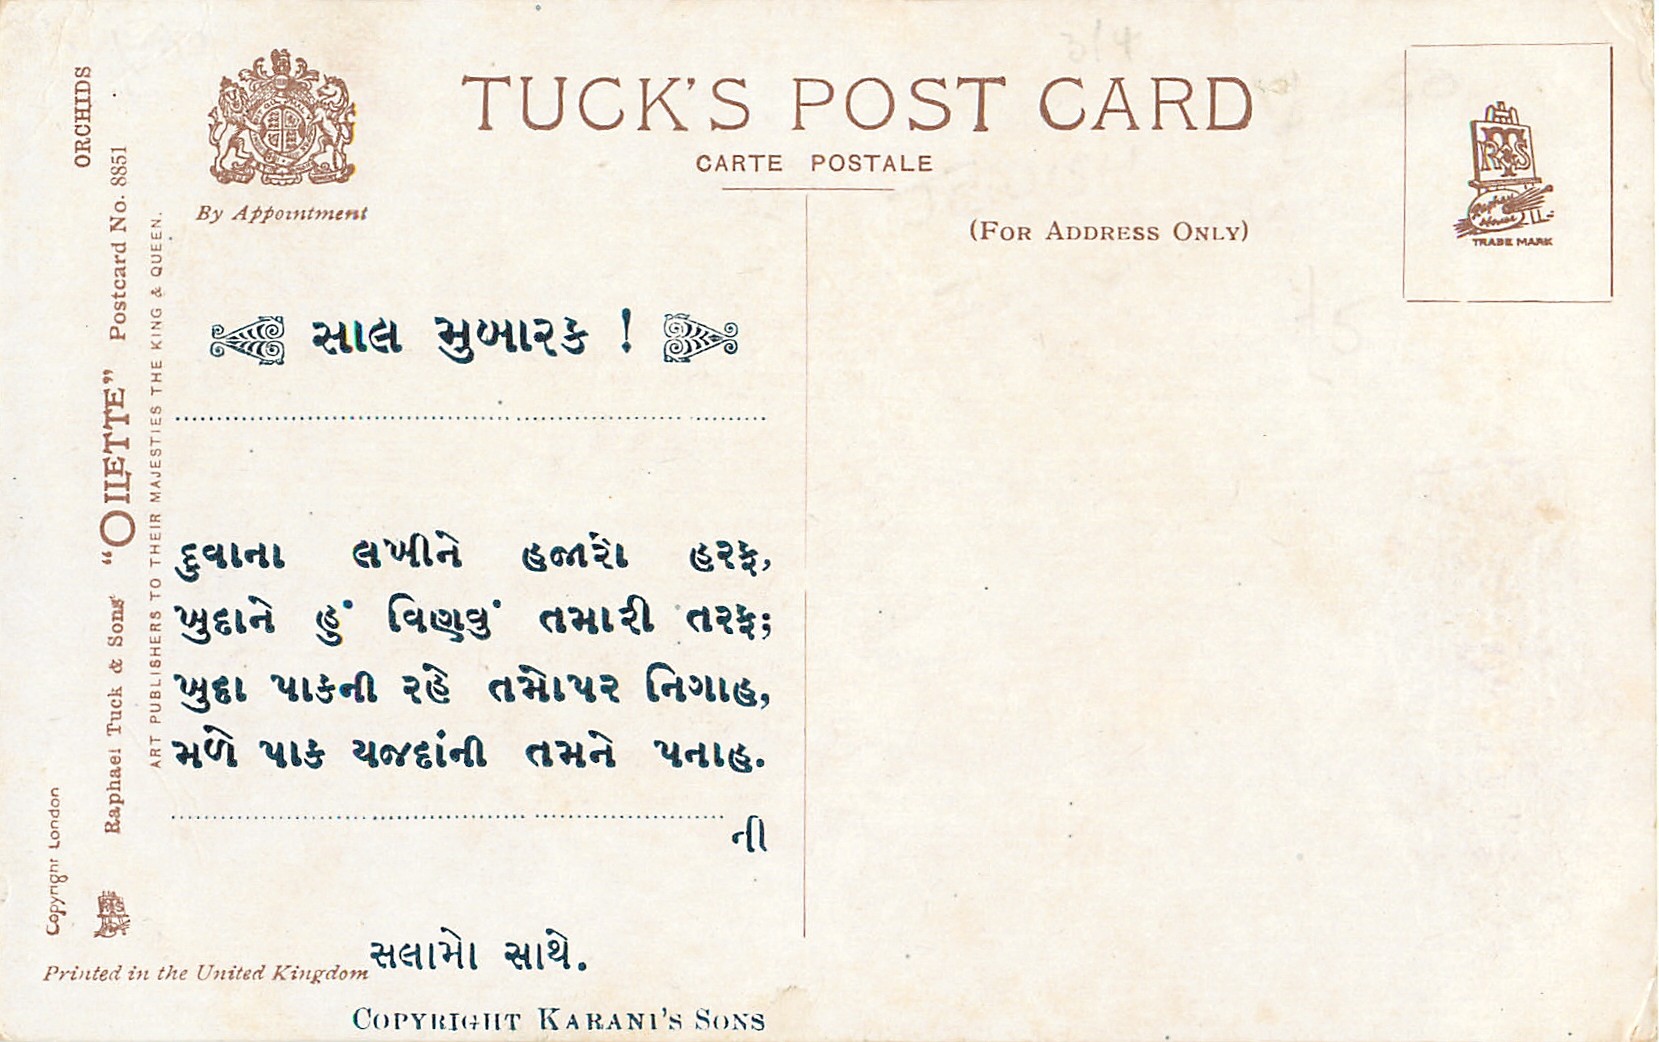 TUCK'S POST CARD
CARTE POSTALE
By Appointment
(FOR ADDRESS ONLY)
TRADE MARK
ORCHIDS
Raphael Tuck & Sons' "OILETTE" Postcard No. 8851
ART PUBLISHERS TO THEIR MAJESTIES THE KING & QUEEN.
Copyright London
સાલ મુબારક !
દુવાના લખીને હજારો હરફ,
ખુદાને હું વિણવું તમારી તરફ;
ખુદા પાકની રહે તમોપર નિગાહ,
મળે પાક યજદાંની તમને પનાહ.
ની
સલામો સાથે.
Printed in the United Kingdom
COPYRIGHT KARANI'S SONS